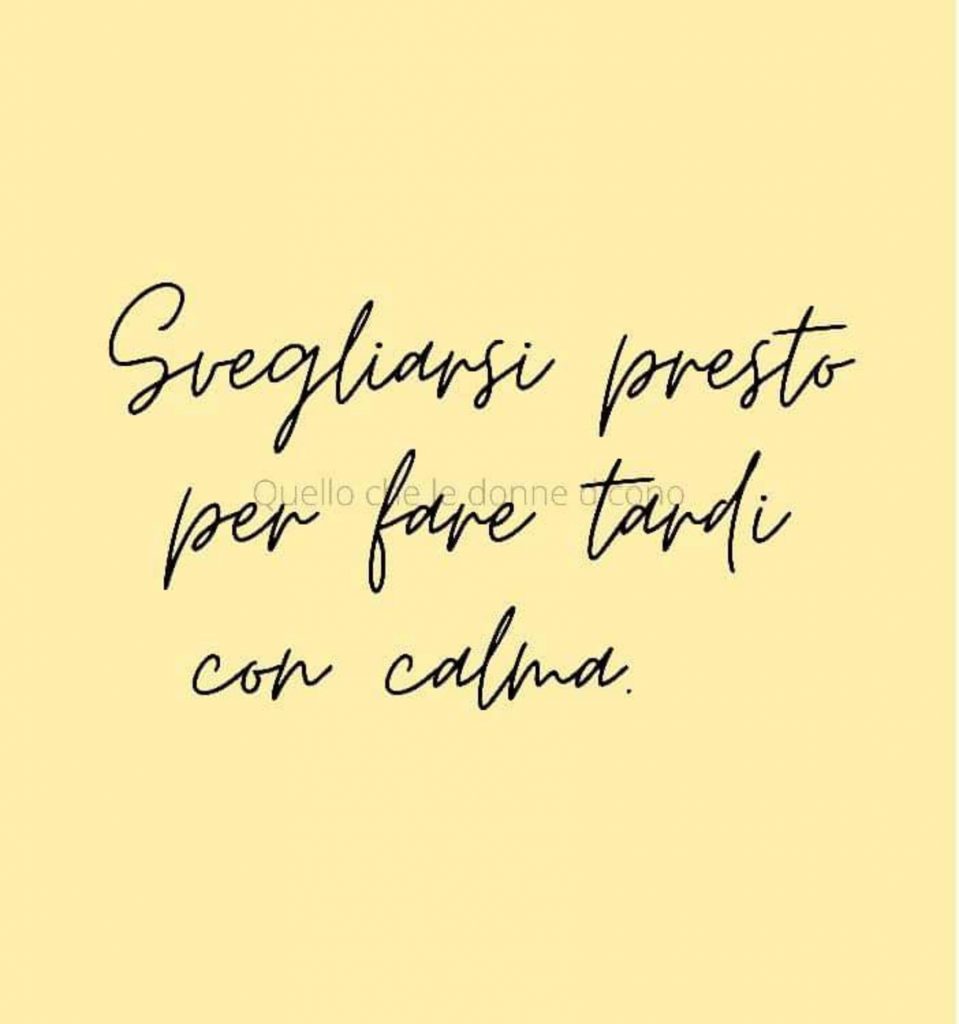 Svegliarsi presto
per fare tardi
Quello che le donne dicono
con calma.